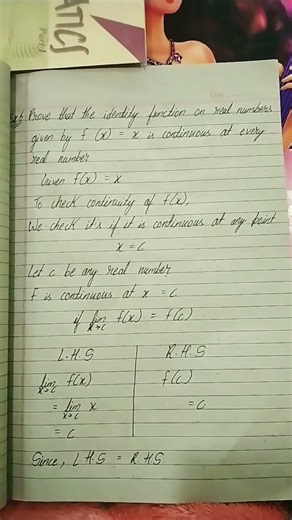 MATICS
Part I
Ex 6 Prove that the identity function on real numbers
given by f (x) = x is continuous at every
real number
Given f(x) = x
To check continuity of f(x),
We check it's if it is continuous at any point
x = c
Let c be any real number
f is continuous at x = c
if lim x→c f(x) = f(c)
L.H.S
lim x→c f(x)
= lim x→c x
= c
R.H.S
f(c)
= c
Since, L.H.S = R.H.S.